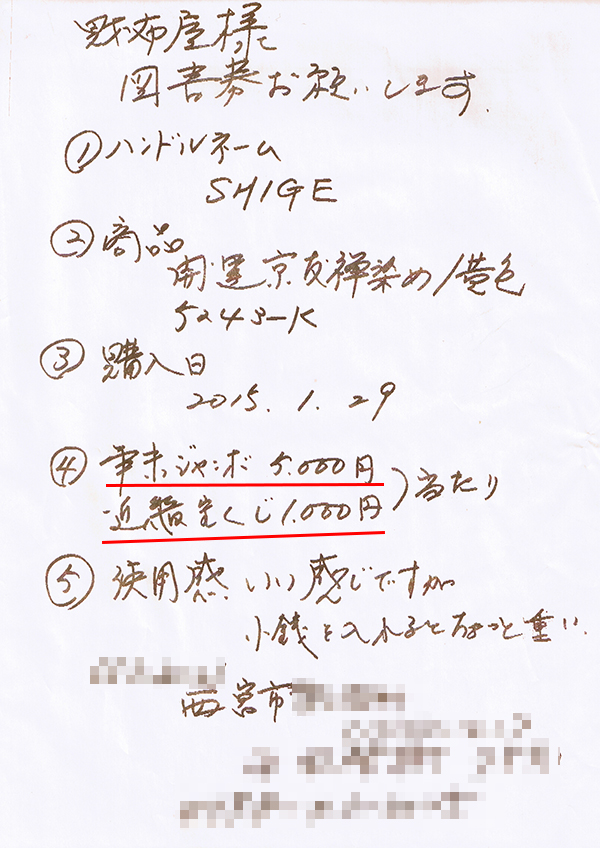 財布屋様
図書券お願いします。
① ハンドルネーム
SHIGE
② 商品
開運京友禅染め/黄色
5243-K
③ 購入日
2015.1.29
④ 年末ジャンボ 5.000円
近畿宝くじ1.000円 )当たり
⑤ 使用感 いい感じですが
小銭を入れるとちょっと重い.
西宮市